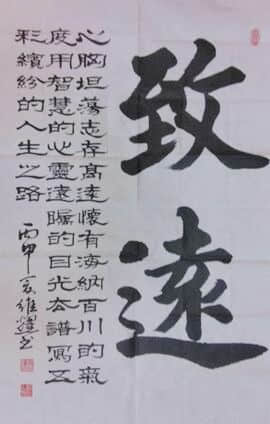 致遠
心胸坦蕩志存高遠懷有海納百川的氣
度用智慧的心靈遠矚的目光去譜寫五
彩繽紛的人生之路
丙申夏維书